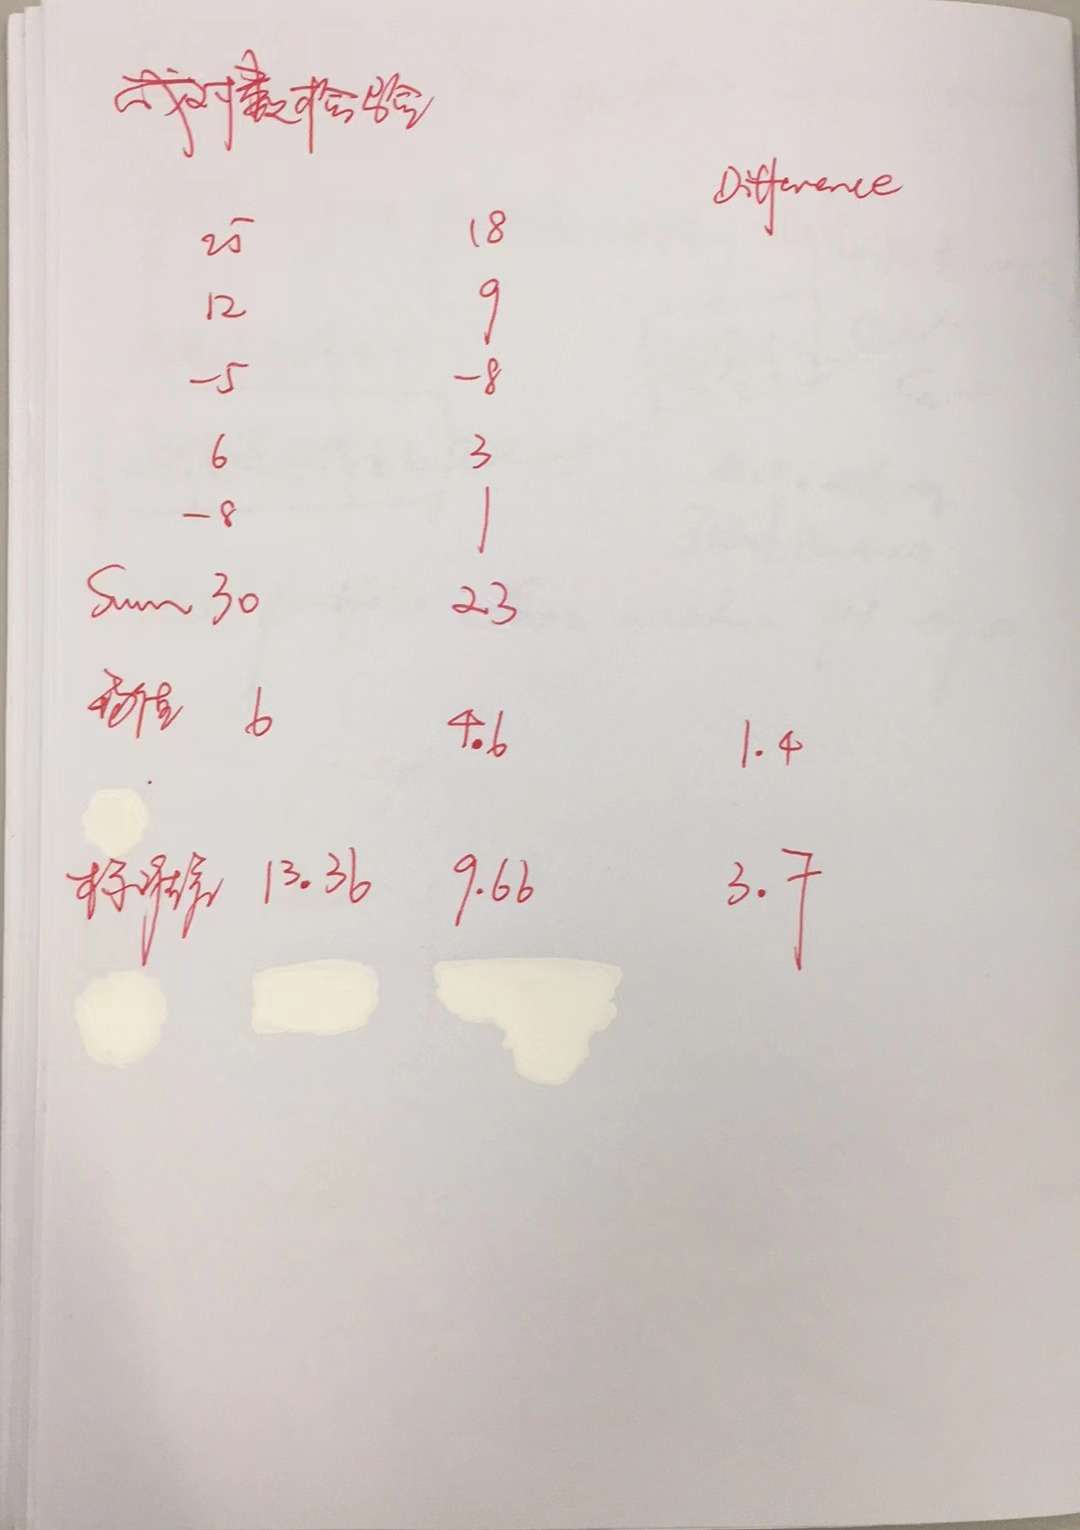 成对数检验
Difference
25 18
12 9
-5 -8
6 3
-8 1
Sum 30 23
均值 6 4.6 1.4
标准差 13.36 9.66 3.7